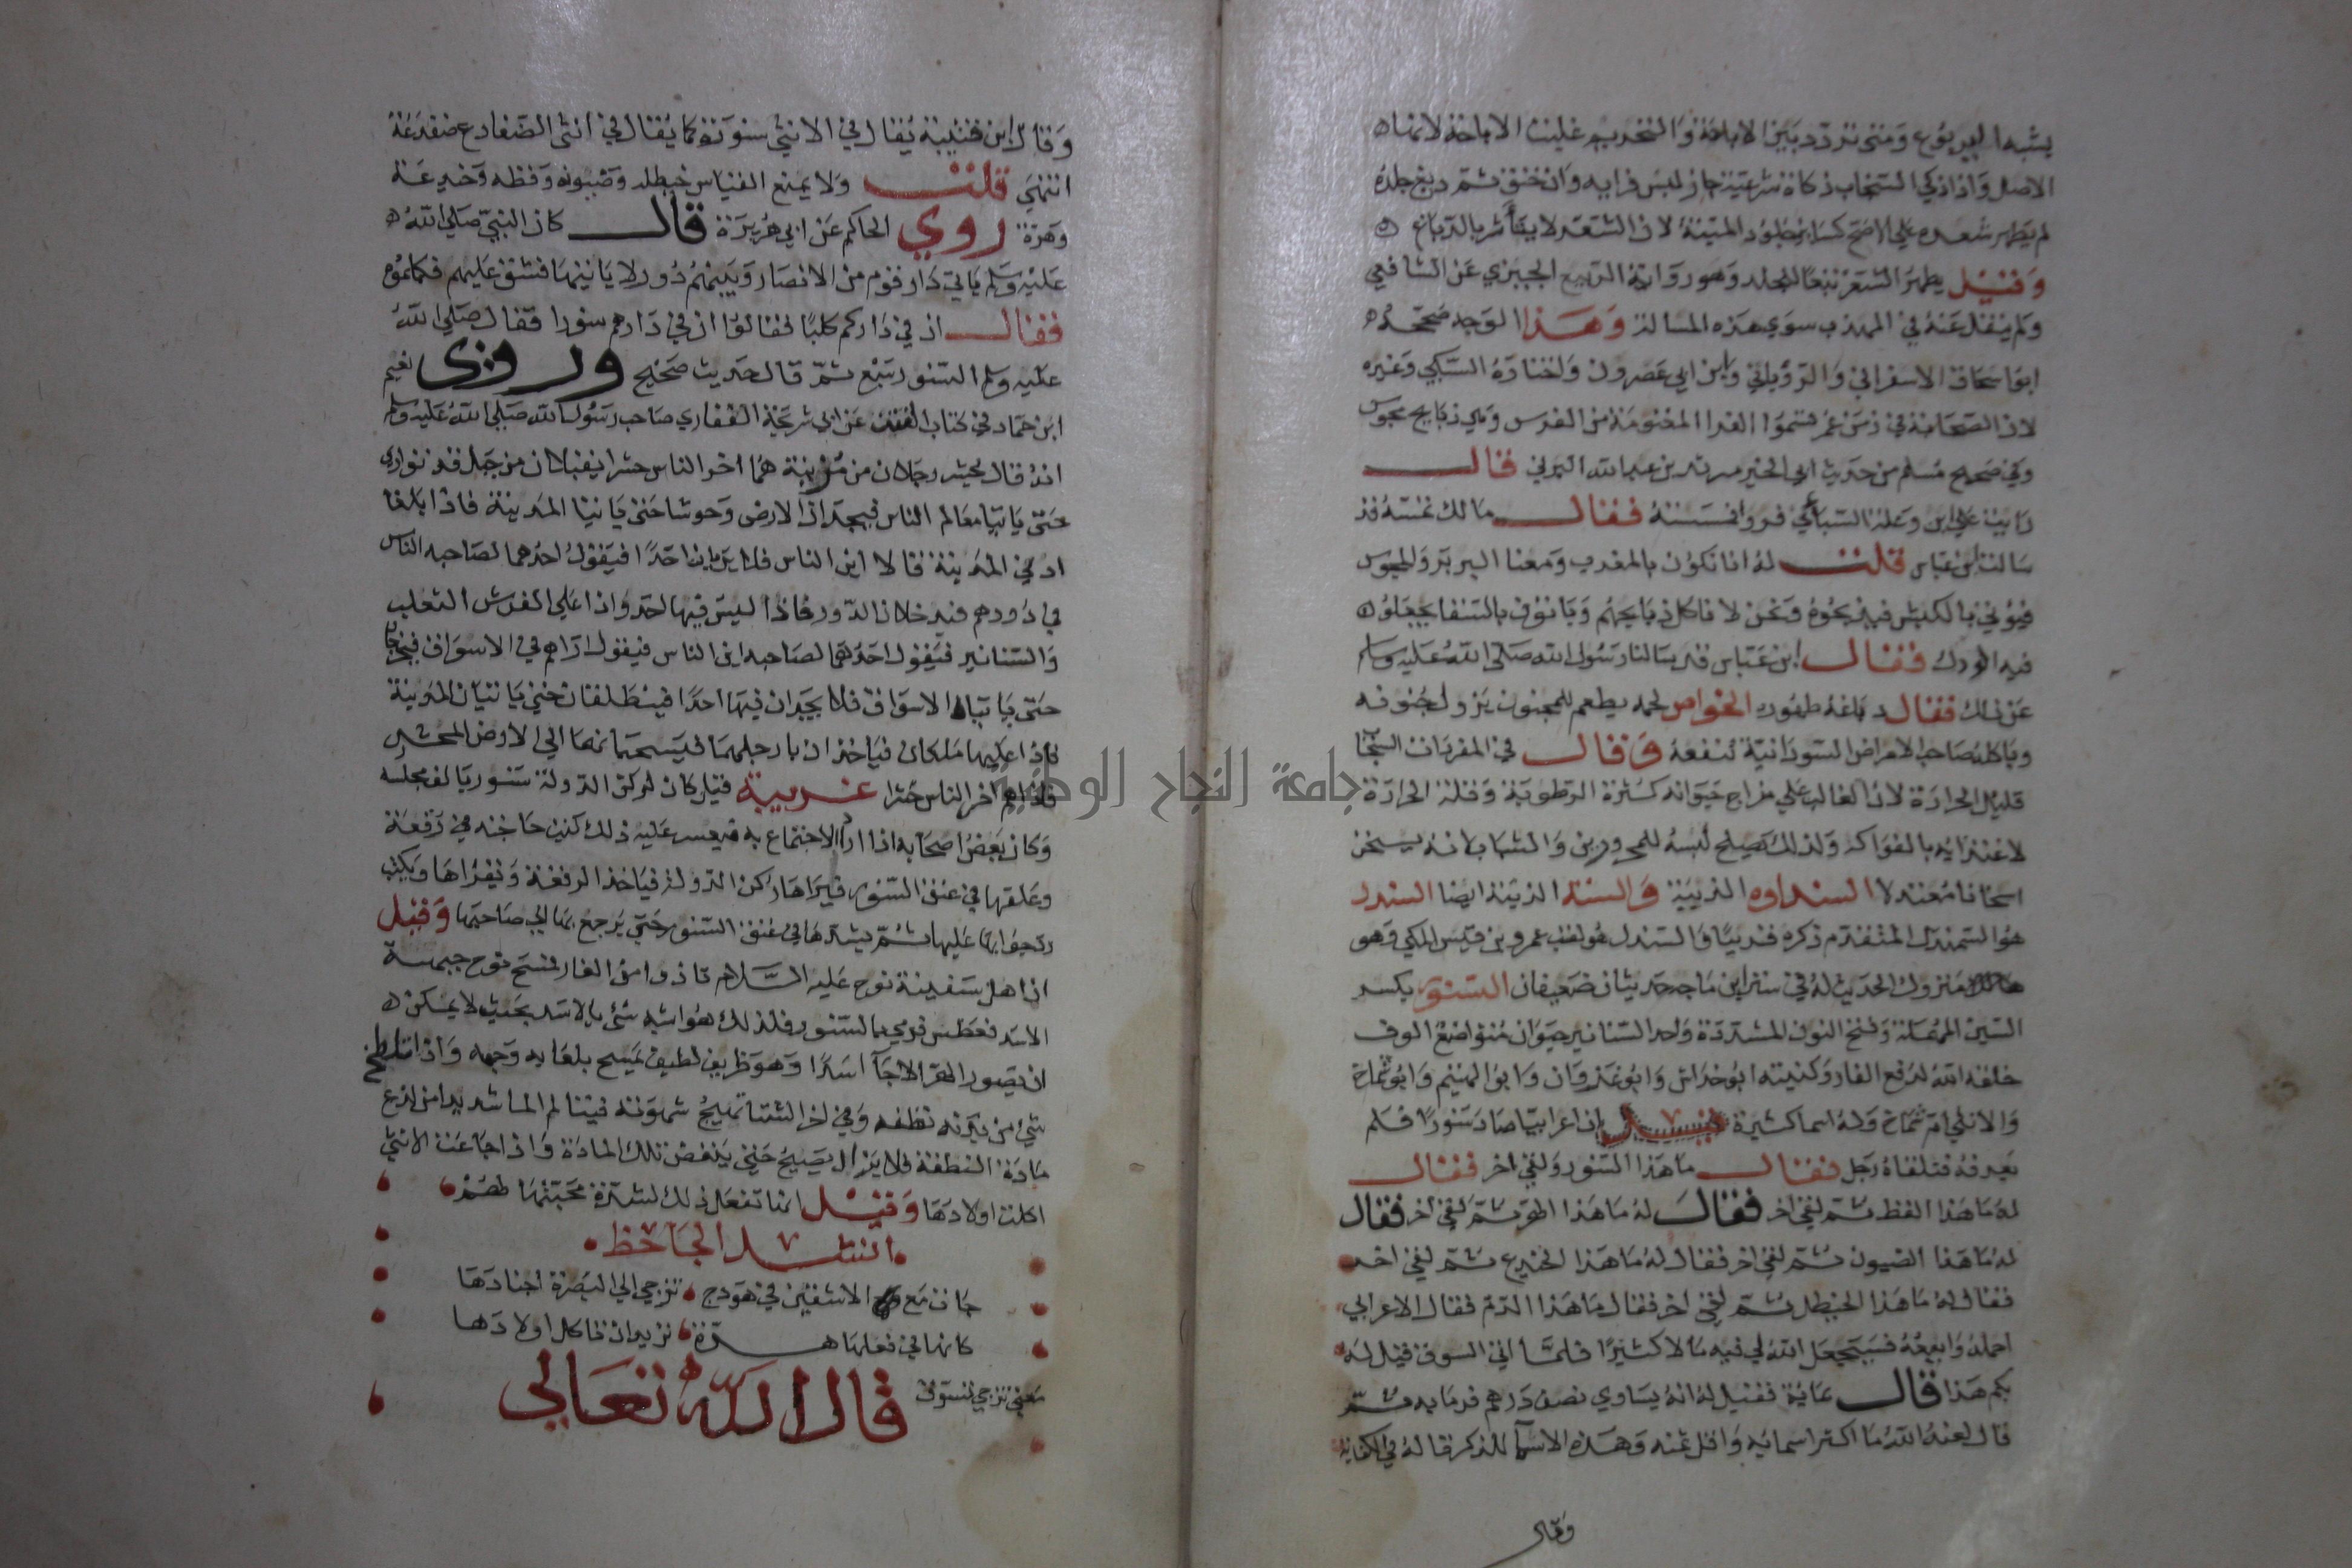 يشبه اليربوع ومتى تردد بين الاباحة والتحريم غلبت الاباحة لانها
الاصل واذا ذكي السنجاب ذكاة شرعية جاز لبس فرايه وان خنق ثم دبغ جلده
لم يطهر شعره علي الاصح كسائر جلود الميتة لان الشعر لا يتأثر بالدباغ
وقيل يطهر الشعر تبعا للجلد وهو رواية الربيع الجيزي عن الشافعي
ولم ينقل عنه في المهذب سوي هذه المسالة وهذا الوجه صححه
ابو اسحاق الاسفراني والروياني وابن ابي عصرون واختاره السبكي وغيره
لان الصحابة في زمن عمر قسموا الفرا المغنومة من الفرس وهي ذبايح مجوس
وفي صحيح مسلم من حديث ابي الخير مرثد بن عبد الله اليزني قال
رايت علي ابن وعلة السباي فروا فمسسته فقال مالك تمسه قد
سالت ابن عباس قلت له انا نكون بالمغرب ومعنا البربر والمجوس
فيؤتي بالكبش فيذبحوه ونحن لا ناكل ذبايحهم ويانوف بالسقا يجعلوا
فيه الودك فقال ابن عباس قد سالنا رسول الله صلى الله عليه وسلم
عن ذلك فقال دباغه طهوره الخواص لحمه يطعم للمجنون يزول جنونه
وياكله صاحب الامراض السوداوية تنفعه وقال في المفردات السنجاب
قليل الحرارة لان الغالب علي مزاج حيوانه كثرة الرطوبة وقلة الحرارة
لاغتذايه بالفواكه ولذلك يصلح لبسه للمحرورين والشباب لانه يسخن
اسخانا معتدلا السنداوه الذيبة والسنة الذيبة ايضا السندل
هو السمندل المتقدم ذكره قريبا والسندل هو لقب عمرو بن قيس المكي وهو
متروك الحديث له في سنن ابن ماجه حديثان ضعيفان السنور بكسر
السين المهملة وفتح النون المشددة واحد السنانير حيوان متواضع الوف
خلقه الله لدفع الفار وكنيته ابو خداش وابو غزوان وابو الهيثم وابو شماخ
والانثي ام شماخ وله اسما كثيرة قيل ان اعرابيا صاد سنورا فلم
يعرفه فتلقاه رجل فقال ما هذا السنور ولقي اخر فقال
له ما هذا القط ثم لقي اخر فقال له ما هذا الهر ثم لقي اخر فقال
له ما هذا الضيون ثم لقي اخر فقال له ما هذا الخيدع ثم لقي اخر
فقال له ما هذا الخيطل ثم لقي اخر فقال ما هذا الدم فقال الاعرابي
احمله وابيعه فسيجعل الله لي فيه مالا كثيرا فلما اتي السوق قيل له
بكم هذا قال بماية فقيل له انه يساوي نصف درهم فرما به ثم
قال لعنه الله ما اكثر اسمايه واقل ثمنه وهذه الاسما للذكر قاله في الكفاية
وقال
وقال ابن قتيبة يقال في الانثي سنورة كما يقال في انثى الضفادع ضفدعة
انتهي قلت ولا يمنع القياس خيطله وضيونه وقطه وخيدعة
وهرة روي الحاكم عن ابي هريرة قال كان النبي صلى الله
عليه وسلم ياتي دار قوم من الانصار وبينهم دور لا ياتيها فشق عليهم فكلموه
فقال ان في داركم كلبا فقالوا ان في دارهم سنورا فقال صلى الله
عليه وسلم السنور سبع ثم قال حديث صحيح وروى نعيم
ابن حماد في كتاب الفتن عن ابي شريحة الغفاري صاحب رسول الله صلى الله عليه وسلم
انه قال يحشر رجلان من مزينة هما اخر الناس حشرا يقبلان من جبل قد تواري
حتى ياتيا معالم الناس فيجدان الارض وحوشا حتى ياتيا المدينة فاذا بلغا
ادني المدينة قالا اين الناس فلا يريان احدا فيقول احدهما لصاحبه الناس
في دورهم فيدخلان الدور فاذا ليس فيها احد واذا علي الفرش الثعلب
والسنانير فيقول احدهما لصاحبه اين الناس فيقول اراهم في الاسواق فيخرجا
حتى ياتيا الاسواق فلا يجدان فيها احدا فينطلقان حتى ياتيان المدينة
فاذا عليها ملكان فياخذان بارجلهما فيسحبانهما الي الارض المحشر
فهما اخر الناس حشرا غريبة قيل كان لركن الدولة سنور يالف مجلسه
وكان بعض اصحابه اذا اراد الاجتماع به فيعسر عليه ذلك كتب حاجته في رقعة
وعلقها في عنق السنور فيراها ركن الدولة فياخذ الرقعة ويقراها ويكتب
جوابها عليها ثم يشدها في عنق السنور حتي يرجع بها الي صاحبها وقيل
ان اهل سفينة نوح عليه السلام تاذوا من الفار فمسح نوح جبهة
الاسد فعطس فرمي بالسنور فلذلك هو اشبه شئ بالاسد بحيث لا يمكن
ان يصور الهر الا جآ اسدا وهو ظريف لطيف يمسح بلعابه وجهه واذا تلطخ
شئ من بدنه نظفه وفي اخر الشتا تهيج شهوته فيتالم الما شديدا من لذع
مادة النطفة فلا يزال يصيح حتي ينفض تلك المادة واذا جاعت الانثي
اكلت اولادها وقيل انما تفعل ذلك لشدة محبتها لهم
انشد الجاحظ
جات مع الاشفين في هودج تزجي الي البصرة اجنادها
كانها في فعلها هرة تريد ان تاكل اولادها
معني تزجي تسوق قال الله تعالي
جامعة النجاح الوطنية